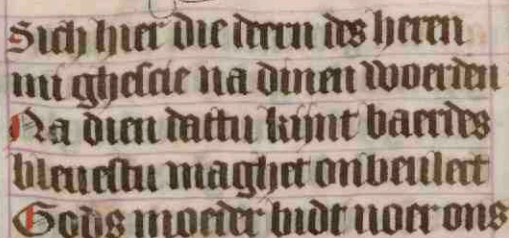 Sich hier die deern des heren
mi ghescie na dinen woerden
Na dien dattu kijnt baerdes
bleuestu maghet onbeulect
Gods moeder bidt uoer ons